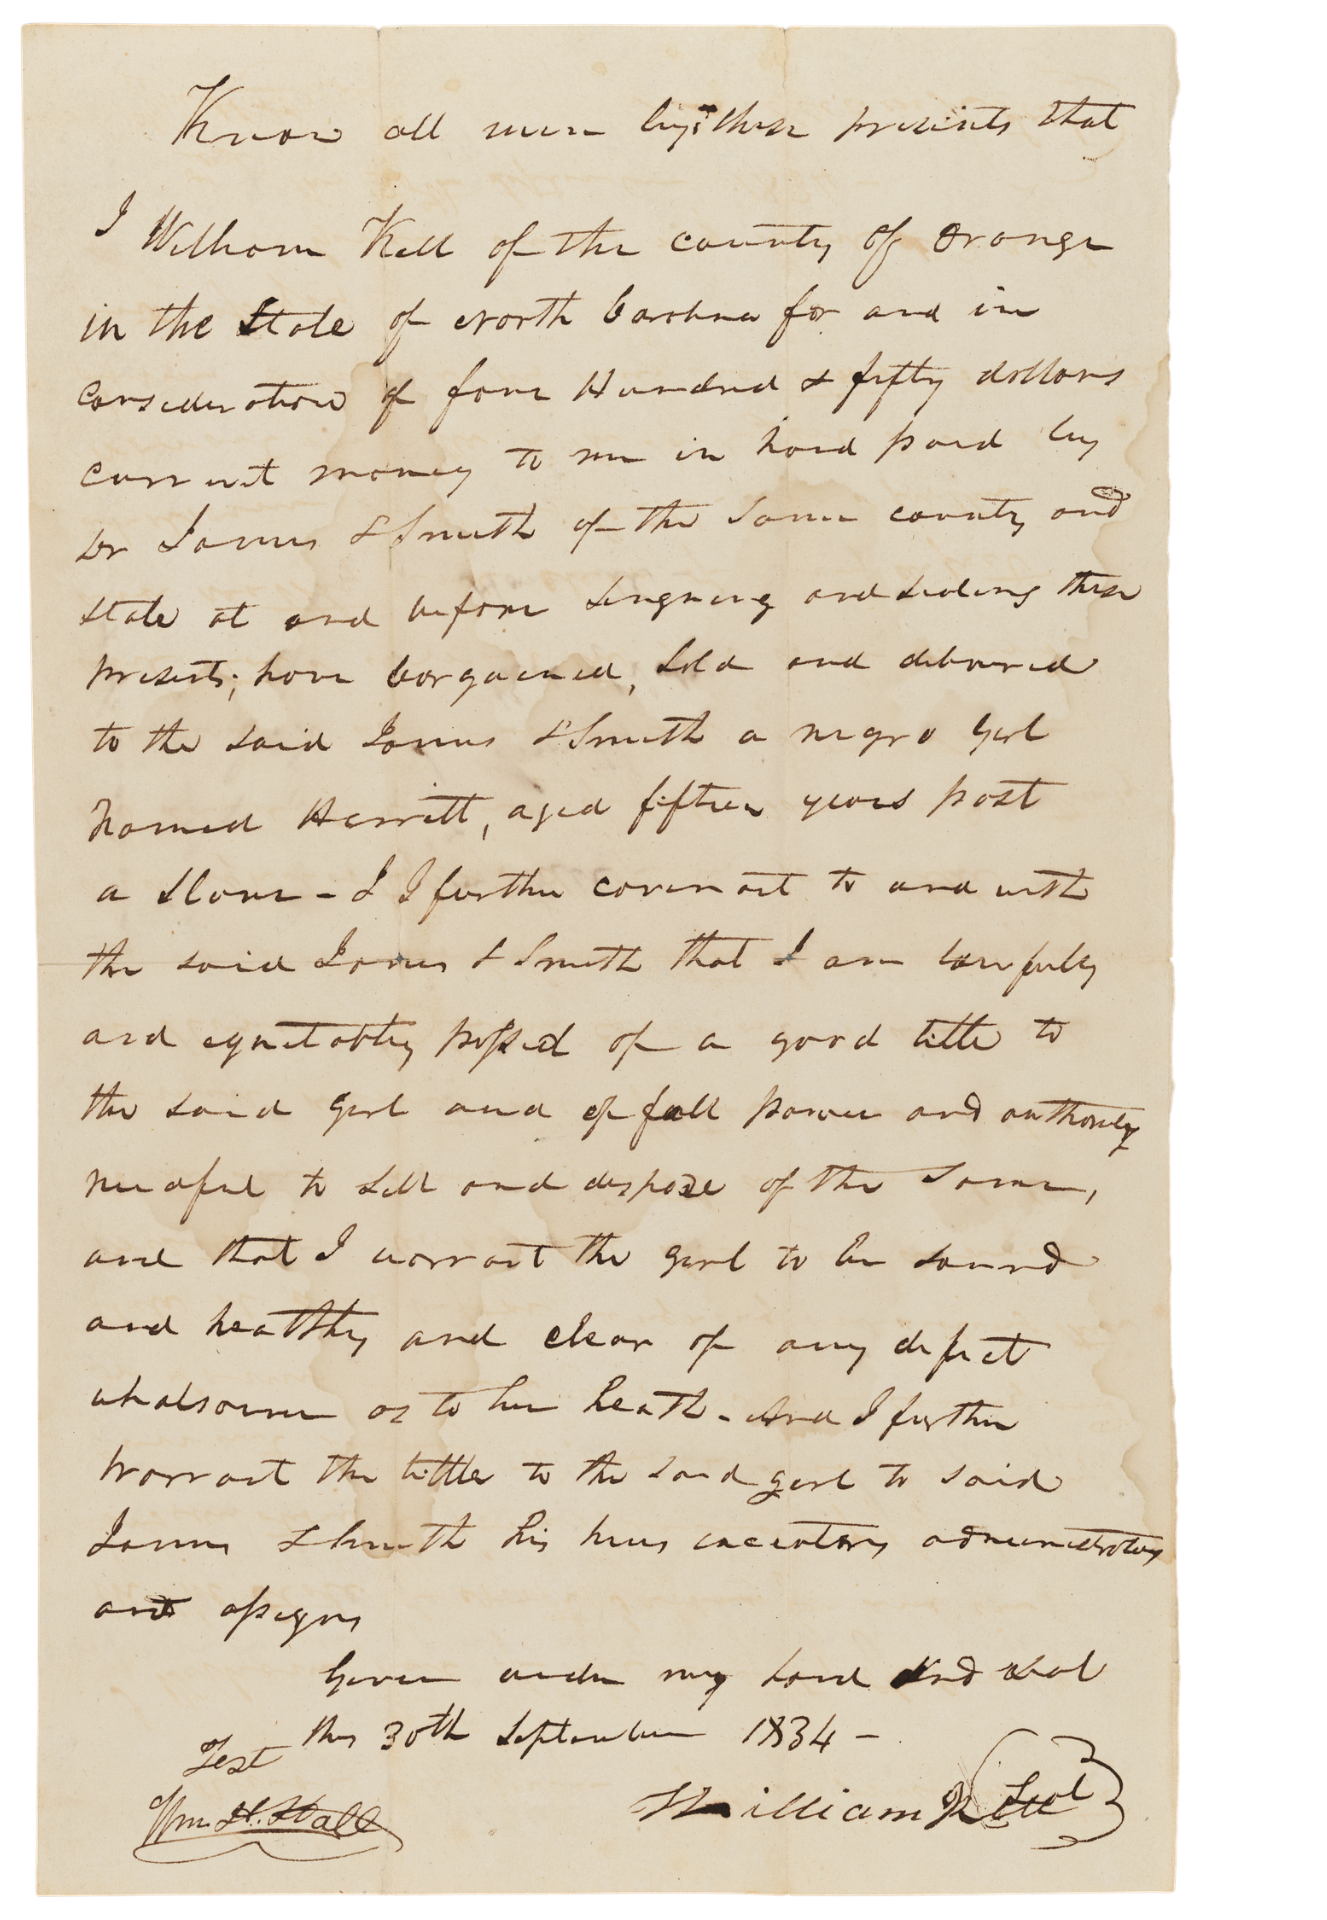 Know all men by these presents that
I William Kell of the county of Orange
in the State of North Carolina for and in
consideration of four Hundred & fifty dollars
current money to me in hand paid by
Dr James S Smith of the same county and
state at and before singning and sealing these
presents; have bargained, sold and delivered
to the said James S Smith a negro girl
Named Harritt, aged fifteen years past
a Slave - & I further covenant to and with
the said James S Smith that I am lawfully
and equitabley possed of a good title to
the said girl and of full power and authority
needful to sell and dispose of the same,
and that I warrant the girl to be sound
and heatthy and clear of any defect
whatsoever as to her heath - And I further
Warrant the tittle to the said girl to said
James S Smith his heirs executors administrators
and assigns
Given under my hand and seal
this 30th September 1834 -
Test
Wm. H. Hall
William Kell Seal